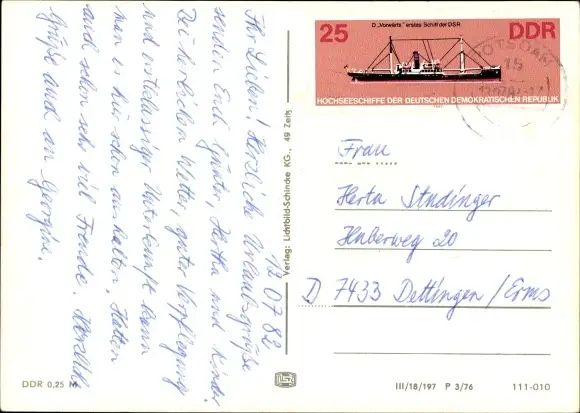 12.07.82
Ihr Lieben! Herzliche Urlaubsgrüße
senden Euch Günter, Hertha und Kinder
Bei herrlichem Wetter, guter Verpflegung
und erstklassiger Unterkunft kann
man es hier schon aushalten. Hatten
auch schon sehr viel Freude. Herzliche
Grüße auch an Georgine.
Verlag: Lichtbild-Schincke KG., 49 Zeitz
DDR 0,25 M
25 D. „Vorwärts" erstes Schiff der DSR DDR
HOCHSEESCHIFFE DER DEUTSCHEN DEMOKRATISCHEN REPUBLIK
POTSDAM
15
Frau
Herta Studinger
Huberweg 20
D 7433 Dettingen/Erms
III/18/197 P 3/76 111-010